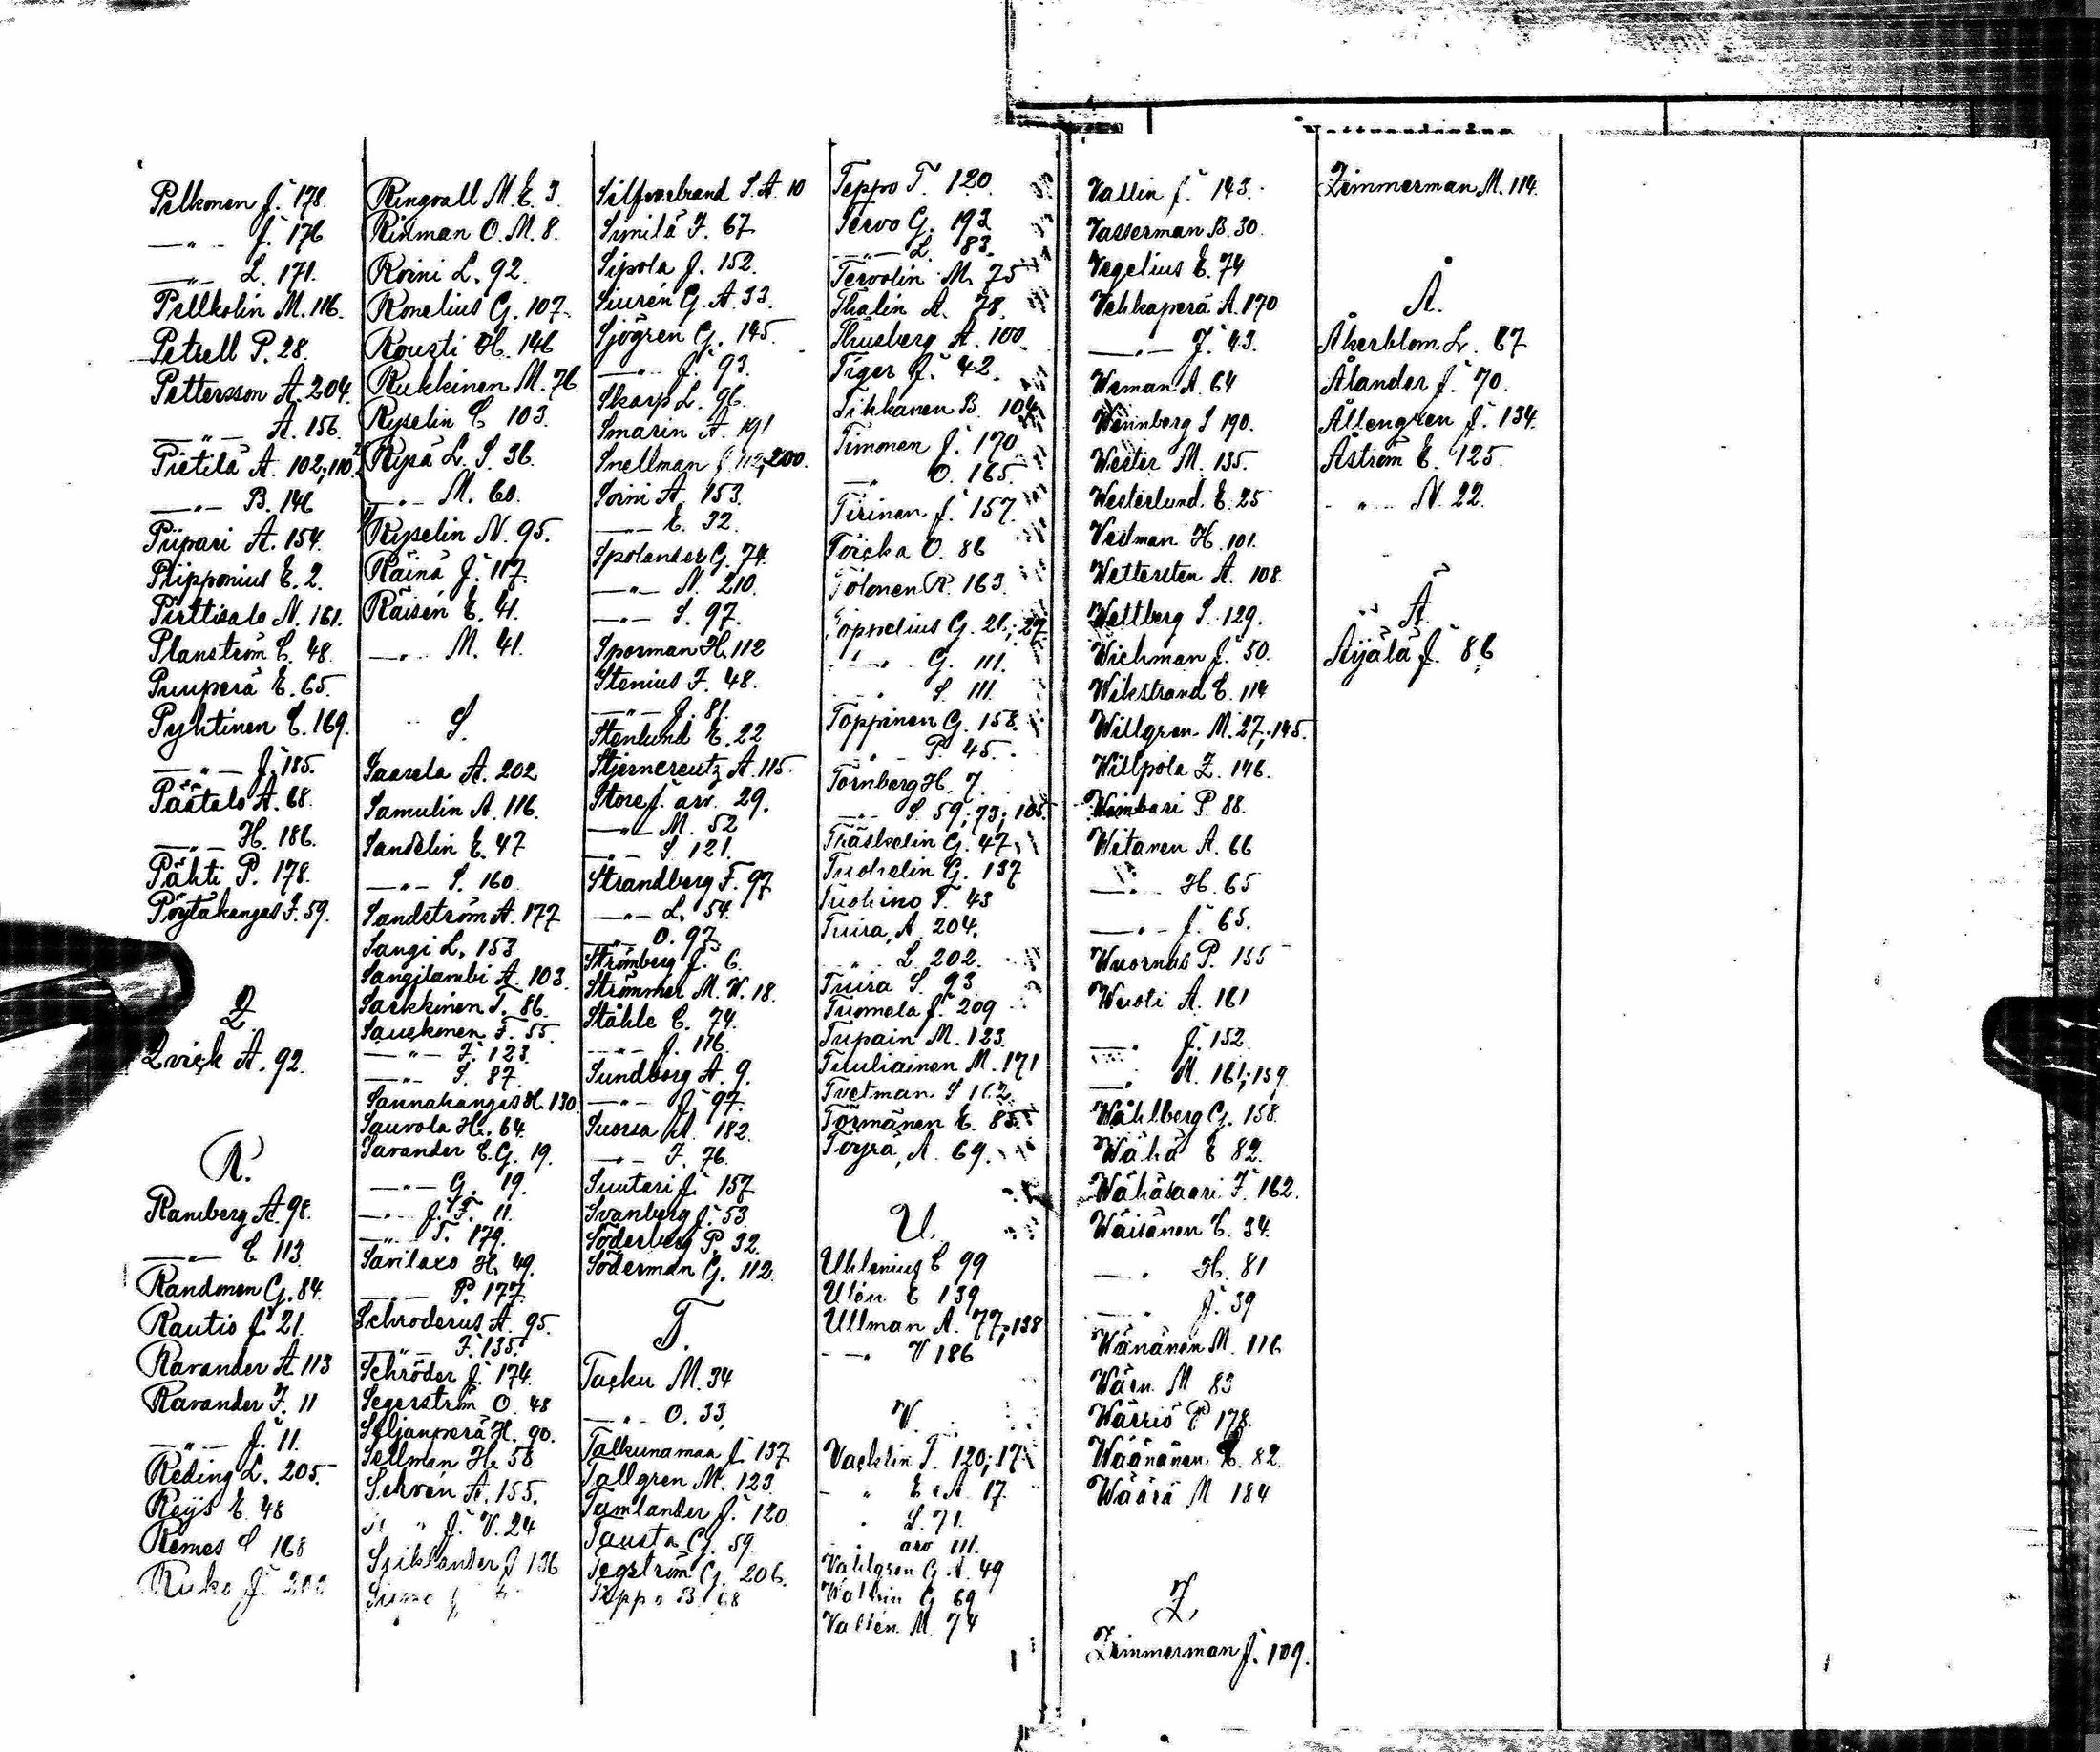 Pelkonen J. 178.
—„— J. 176
—„— L. 171.
Pellkolin M. 116.
Petrell P. 28.
Pettersson A. 204.
—„— A. 156.
Pietilä A. 102; 110
—„— B. 146
Piipari A. 154.
Piipponius E. 2.
Pirttisalo N. 161.
Planström C. 48
Puuperä E. 65.
Pyhtinen C. 169.
—„— J. 185.
Päätalo A. 68.
—„— H. 186.
Pähti P. 178.
Pöytäkangas J. 59.
Q
Qvick A. 92.
R.
Ramberg A. 98.
—„— C 113
Randonen G. 84.
Rautio J. 21.
Ravander A. 113
Ravander F. 11
—„— J. 11.
Reding L. 205.
Reijs E. 48
Remes S 168
Ringvall M. E. 3.
Rinman O. M. 8.
Roini L. 92.
Ronelius G. 107.
Rousti H. 146
Rukkinen M. 76
Ryselin C 103.
Rysä L. S. 36.
—„— M. 60.
Ryselin N. 95.
Räinä J. 117.
Räisen E. 41.
—„— M. 41.
S.
Saarela A. 202
Samulin A. 116.
Sandelin E. 47
—„— S. 160
Sandström A. 177
Sangi L. 153
Sangilambi A. 103.
Sarkkinen T. 86.
Saukonen F. 55.
—„— J. 123.
—„— S. 87.
Saunakangas H. 130.
Sauvola H. 64.
Savander C. G. 19.
—„— G. 19.
—„— J. F. 11.
—„— T. 179.
Savilaxo H. 49.
—„— P. 177.
Schroderus A. 95.
—„— F. 135.
Schröder J. 174.
Segerström O. 48
Seljanperä H. 90.
Sellman H. 58
Sehvén A. 155.
„ J. V. 24
J 136
Silfverbrand S. A. 10
Similä F. 67
Sipola J. 152.
Siurén G. A. 33.
Sjögren G. 145.
—„— J. 93.
Skarp L. 96.
Smarin A. 191
Snellman J. 112; 200.
Soini A. 153.
—„— E. 32.
Spolander G. 74.
—„— N. 210.
—„— S. 97.
Sporman H. 112
Stenius F. 48.
—„— J. 81.
Stenlund E. 22
Stjerncreutz A. 115.
Store J. arv. 29.
—„— M. 52
—„— S. 121.
Strandberg F. 97
—„— L. 54.
—„— O. 97.
Strömberg J. 6.
Strömmer M. W. 18.
Ståhle C. 74.
—„— J. 116.
Sundborg A. 9.
—„— J. 97.
Suorsa M. 182.
—„— F. 76.
Suutari J. 157
Svanberg J. 53.
Söderberg P. 32.
Söderman G. 112.
T.
Tacku M. 34
—„— O. 33.
Talkunamaa J. 137
Tallgren M. 123.
Tamlander J. 120
Tausta G. 59
Tegström G. 206.
Teppo B. 68
Teppo T. 120.
Tervo G. 193
—„— L. 83.
Tervolin M. 75
Thalin A. 78.
Thusberg A. 100.
Tiger J. 42.
Tikkanen B. 104
Timonen J. 170
„ O. 165.
Tirinen J. 157.
Toicka O. 86
Tolonen R. 163.
Topnelius G. 21; 27
—„— G. 111.
„ S 111.
Toppinen G. 158.
„ P. 45.
Tornberg H. 7.
—„— S. 59; 73; 105
Träskelin G. 47.
Tuohelin G. 137
Tuohino T. 43
Tuira A. 204.
„ L 202.
Tuira S. 93
Tuomela J. 209
Tupain M. 123.
Tuuliainen M. 171
Tvetman S 162
Törmänen E. 85.
Töyrä A. 69.
U.
Uhlenius C 99
Ulén E 139
Ullman A. 77; 138
—„ V 186
V.
Vacklin T. 120; 17
„ E. A. 17.
„ S. 71.
„ arv 111.
Vahlgren G. A. 49
Wallin G 69
Vallén M. 74
Vallin J. 143.
Vasserman B. 30.
Vegelius E. 74
Vehkaperä A. 170
—„— J. 43.
Weman A. 64
Wennberg S 190.
Wester M. 135.
Westerlund. E. 25
Vestman H. 101.
Wettersten A. 108.
Wettberg S. 129.
Wichman J. 50.
Wikstrand C. 114
Willgren M. 27; 145.
Willpola Z. 146.
Wimbari P. 88.
Witanen A. 66
—„— H. 65
—„— J. 65.
Wuornas P. 155
Wuoti A. 161
—„ J. 152
—„ M. 161; 159
Wåhlberg G. 158.
Wähä E 82.
Wähäsaari F. 162.
Wäisänen C. 34.
—„ H. 81
—„ J. 39
Wänänen M. 116
Wärn M 83
Wärriö P 178.
Wäänänen C. 82.
Wäärä M 184
Z
Zimmerman J. 109.
Zimmerman M. 114.
Å.
Åkerblom L. 67
Ålander J. 70.
Ållengren J. 134.
Åström E. 125.
„ N. 22.
Ä
Äijälä J. 86